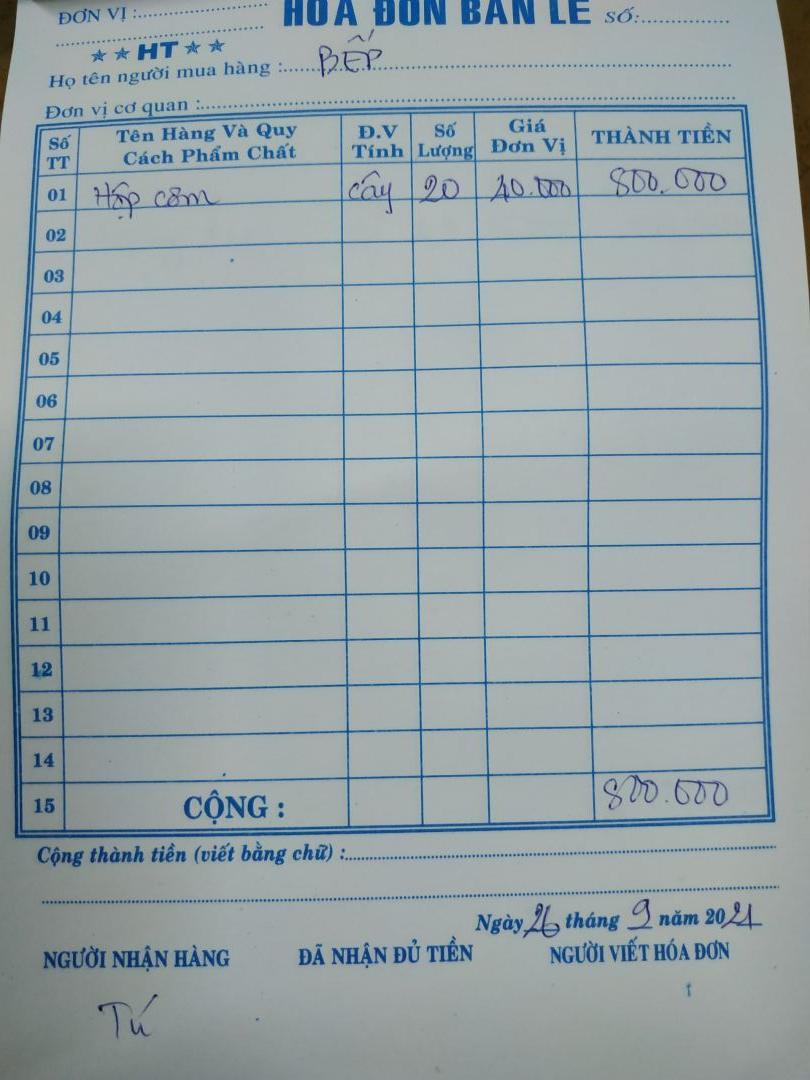 HÓA ĐƠN BÁN LẺ
ĐƠN VỊ :............... SỐ:...............
★ ★ HT ★ ★
Họ tên người mua hàng :..... BẾP
Đơn vị cơ quan :.....
Số TT Tên Hàng Và Quy Cách Phẩm Chất Đ.V Tính Số Lượng Giá Đơn Vị THÀNH TIỀN
01 Hộp cơm cây 20 40.000 800.000
02
03
04
05
06
07
08
09
10
11
12
13
14
15 CỘNG : 800.000
Cộng thành tiền (viết bằng chữ) :.....
Ngày 26 tháng 9 năm 2021
NGƯỜI NHẬN HÀNG ĐÃ NHẬN ĐỦ TIỀN NGƯỜI VIẾT HÓA ĐƠN
Tú